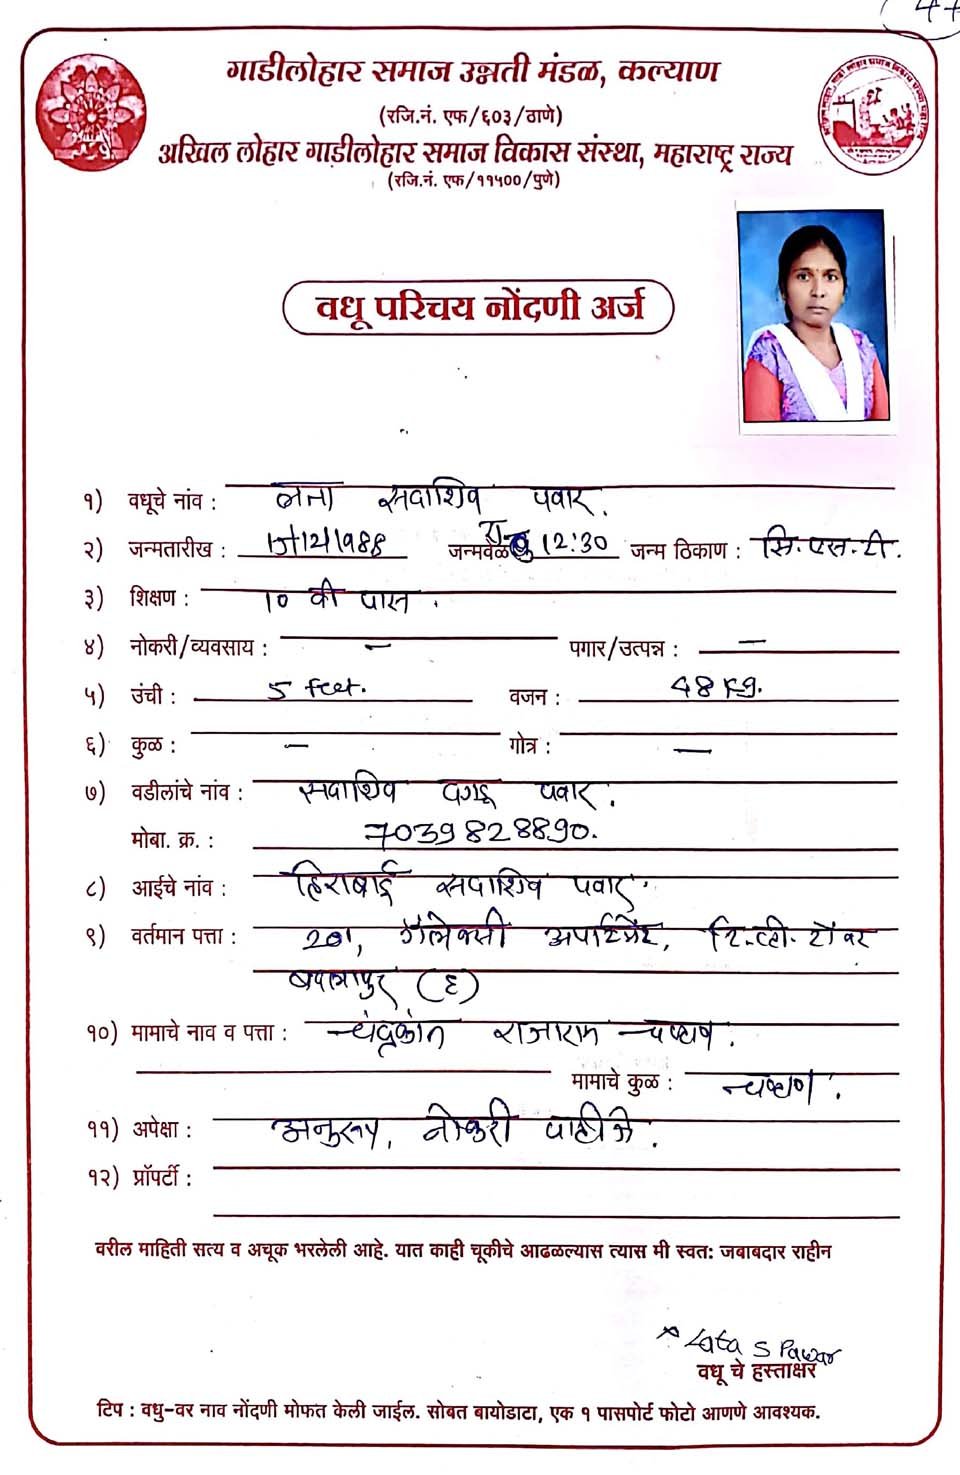 गाडीलोहार समाज उन्नती मंडळ, कल्याण
(रजि.नं. एफ/६०३/ठाणे)
अखिल लोहार गाडीलोहार समाज विकास संस्था, महाराष्ट्र राज्य
(रजि.नं. एफ/११५००/पुणे)
वधू परिचय नोंदणी अर्ज
१) वधूचे नांव : लता सदाशिव पवार.
२) जन्मतारीख : 12/1988 जन्मवेळ 12:30 जन्म ठिकाण : सि.एस.टी.
३) शिक्षण : 10 वी पास.
४) नोकरी/व्यवसाय : – पगार/उत्पन्न : –
५) उंची : 5 feet. वजन : 48 kg.
६) कुळ : – गोत्र : –
७) वडीलांचे नांव : सदाशिव दगडू पवार.
मोबा. क्र. : 7039828890.
८) आईचे नांव : हिराबाई सदाशिव पवार.
९) वर्तमान पत्ता : 201, गॅलेक्सी अपार्टमेंट, टॉवर
बदलापुर
१०) मामाचे नाव व पत्ता : चंद्रकांत राजाराम चव्हाण.
मामाचे कुळ : चव्हाण.
११) अपेक्षा : अनुरूप, नोकरी पाहीजे.
१२) प्रॉपर्टी :
वरील माहिती सत्य व अचूक भरलेली आहे. यात काही चूकीचे आढळल्यास त्यास मी स्वत: जबाबदार राहीन
Lata S Pawar
वधू चे हस्ताक्षर
टिप : वधु-वर नाव नोंदणी मोफत केली जाईल. सोबत बायोडाटा, एक १ पासपोर्ट फोटो आणणे आवश्यक.